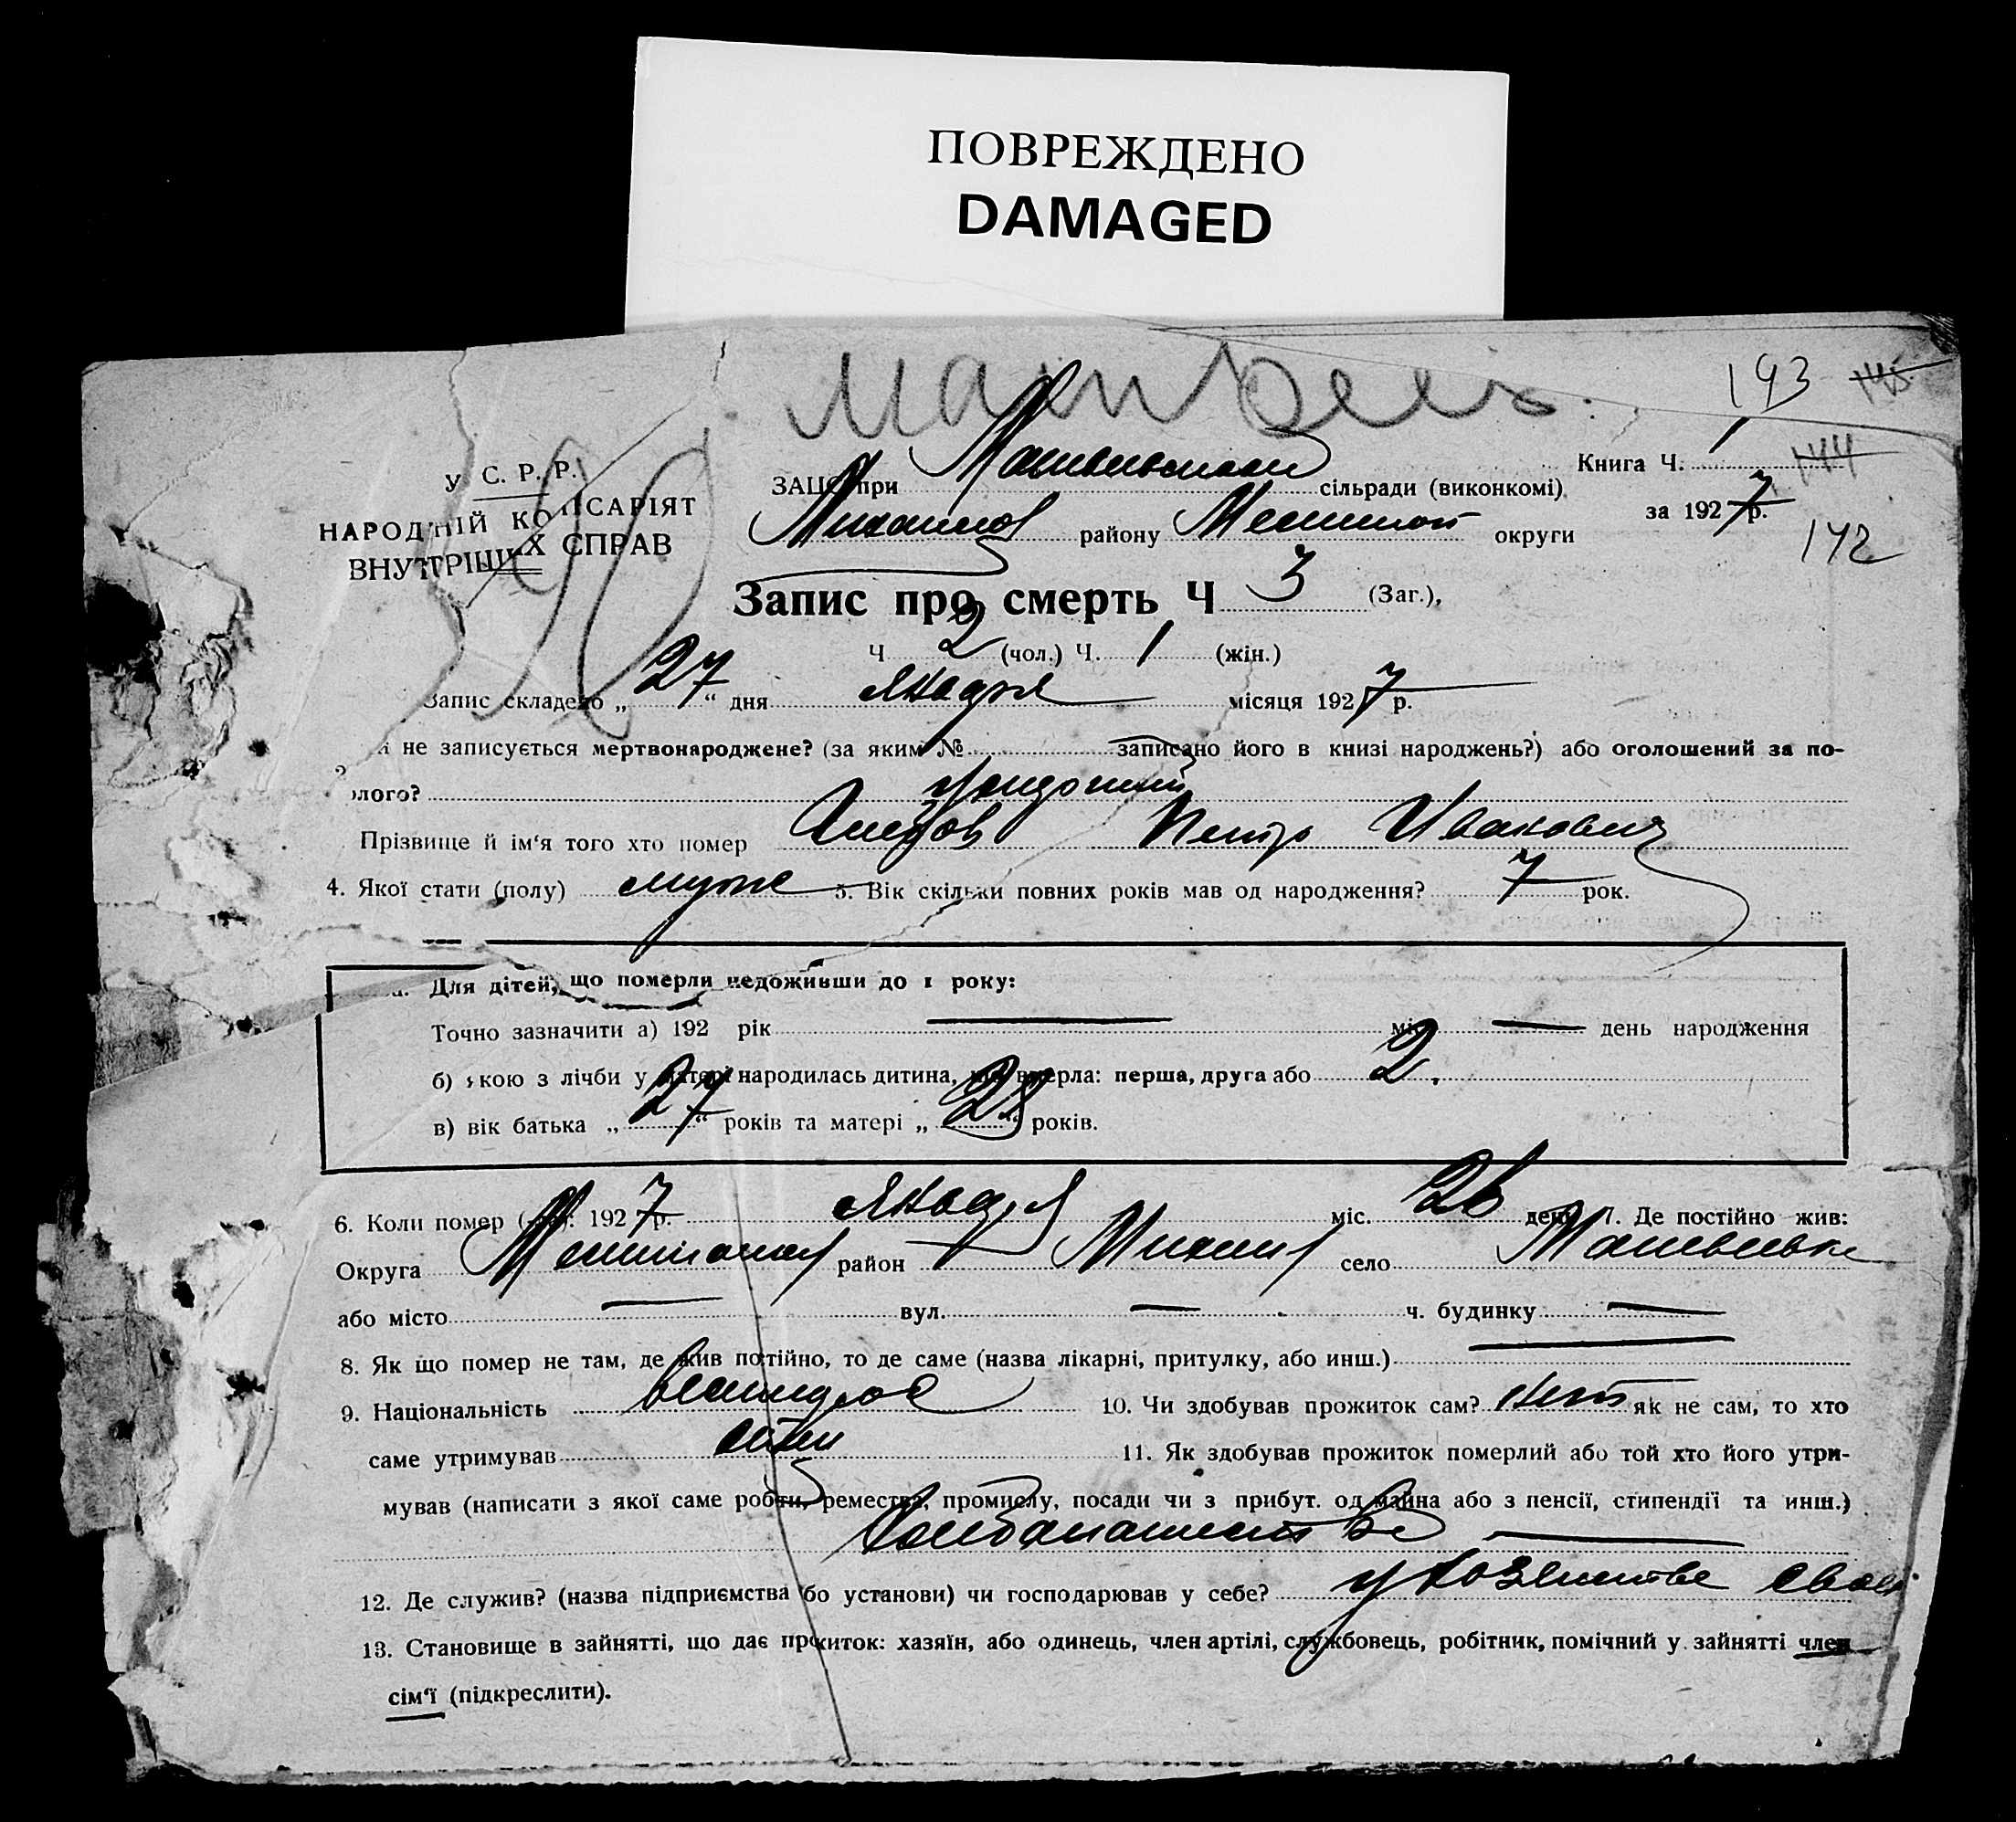 ПОВРЕЖДЕНО
DAMAGED
193
Книга Ч. 1 144
У. С. Р. Р.
ЗАЦС при сільради (виконкомі)
за 1927 р.
НАРОДНІЙ КОМІСАРІЯТ
ВНУТРІШНІХ СПРАВ
району округи
142
Запис про смерть Ч 3 (Заг.),
Ч 2 (чол.) Ч. 1 (жін.)
Запис складено „27“ дня Января місяця 1927 р.
не записується мертвонароджене? (за яким № записано його в книзі народжень?) або оголошений за по-
лого?
Прізвище й ім'я того хто помер Петр Иванович
4. Якої стати (полу) мужс 5. Вік скільки повних років мав од народження? 7 рок.
Для дітей, що померли недоживши до 1 року:
Точно зазначити а) 192 рік — міс. — день народження
б) якою з лічби у матері народилась дитина, що вмерла: перша, друга або 2.
в) вік батька „27“ років та матері „28“ років.
6. Коли помер 1927 р. Января міс. 26 день 7. Де постійно жив:
Округа район село
або місто — вул. — ч. будинку —
8. Як що помер не там, де жив постійно, то де саме (назва лікарні, притулку, або инш.) —
9. Національність 10. Чи здобував прожиток сам? нет як не сам, то хто
саме утримував отец 11. Як здобував прожиток померлий або той хто його утри-
мував (написати з якої саме роботи, ремества, промислу, посади чи з прибут. од майна або з пенсії, стипендії та инш.)
Хлебопашество —
12. Де служив? (назва підприємства або установи) чи господарював у себе? у хозяистве своем
13. Становище в зайнятті, що дає прожиток: хазяїн, або одинець, член артілі, службовець, робітник, помічний у зайнятті член
сім'ї (підкреслити).